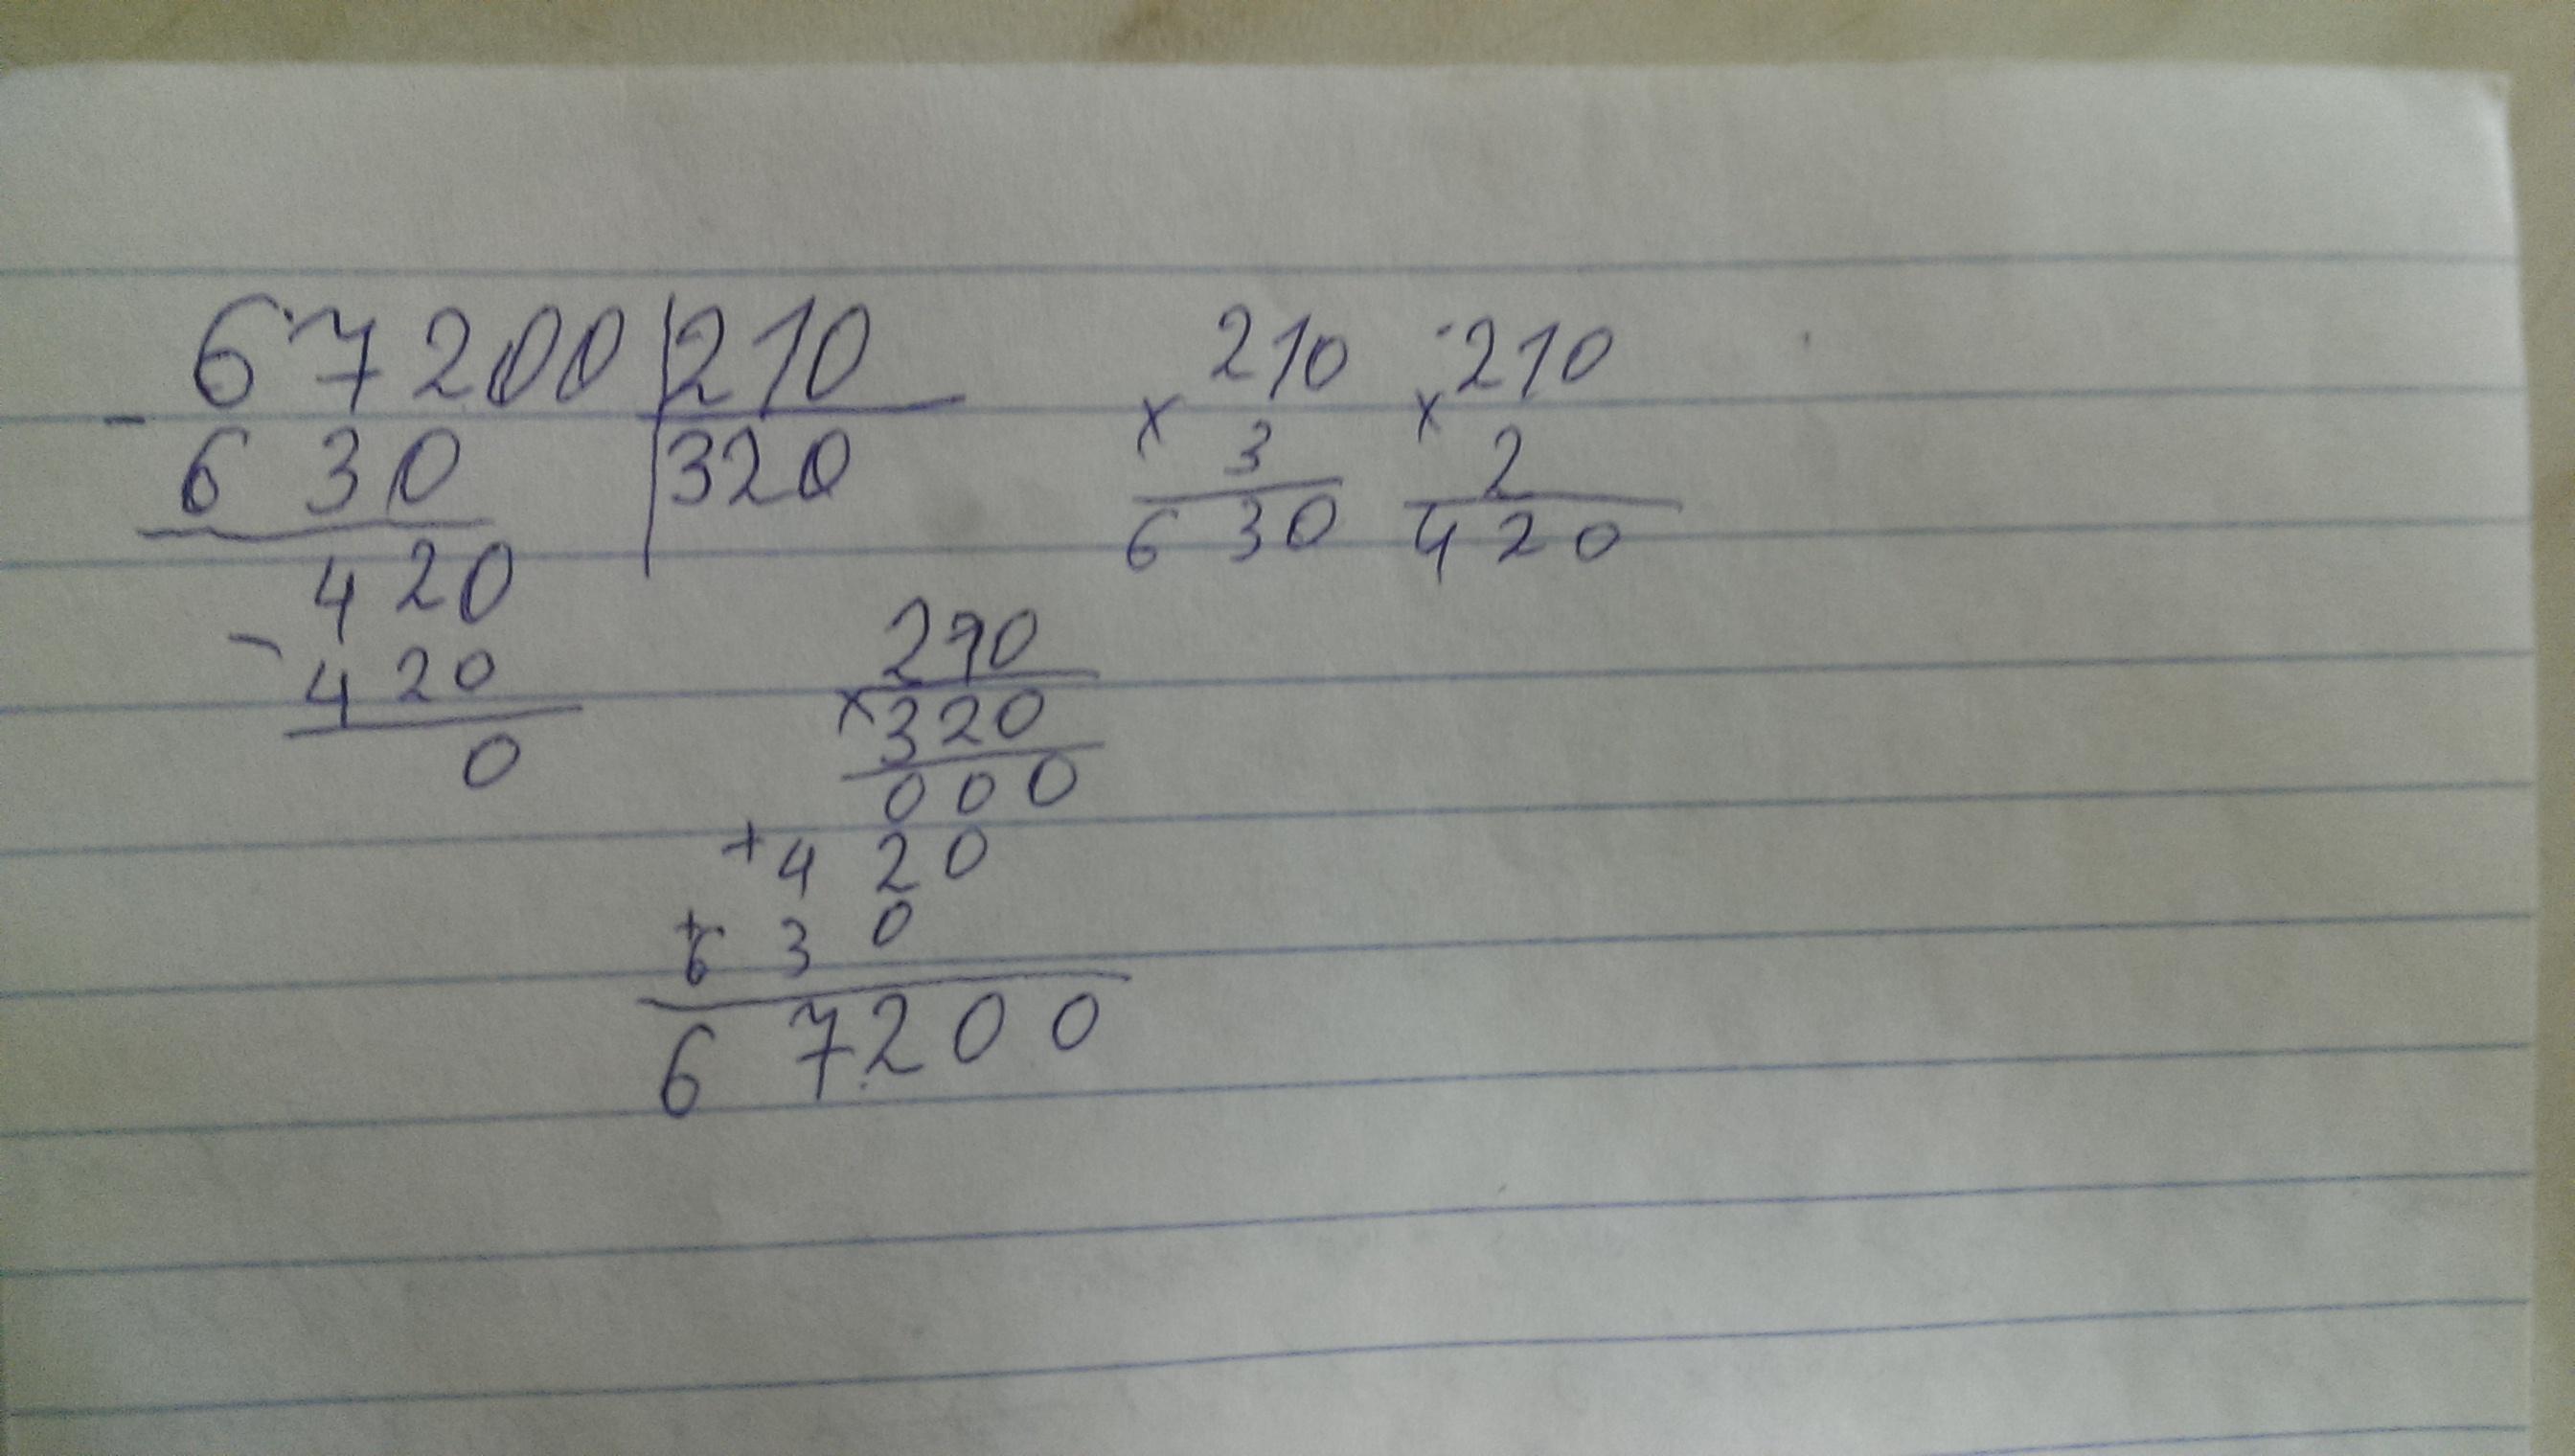 67200 210
- 630 320
420
- 420
0
210
x 3
630
210
x 2
420
210
x 320
000
+ 420
+ 630
67200